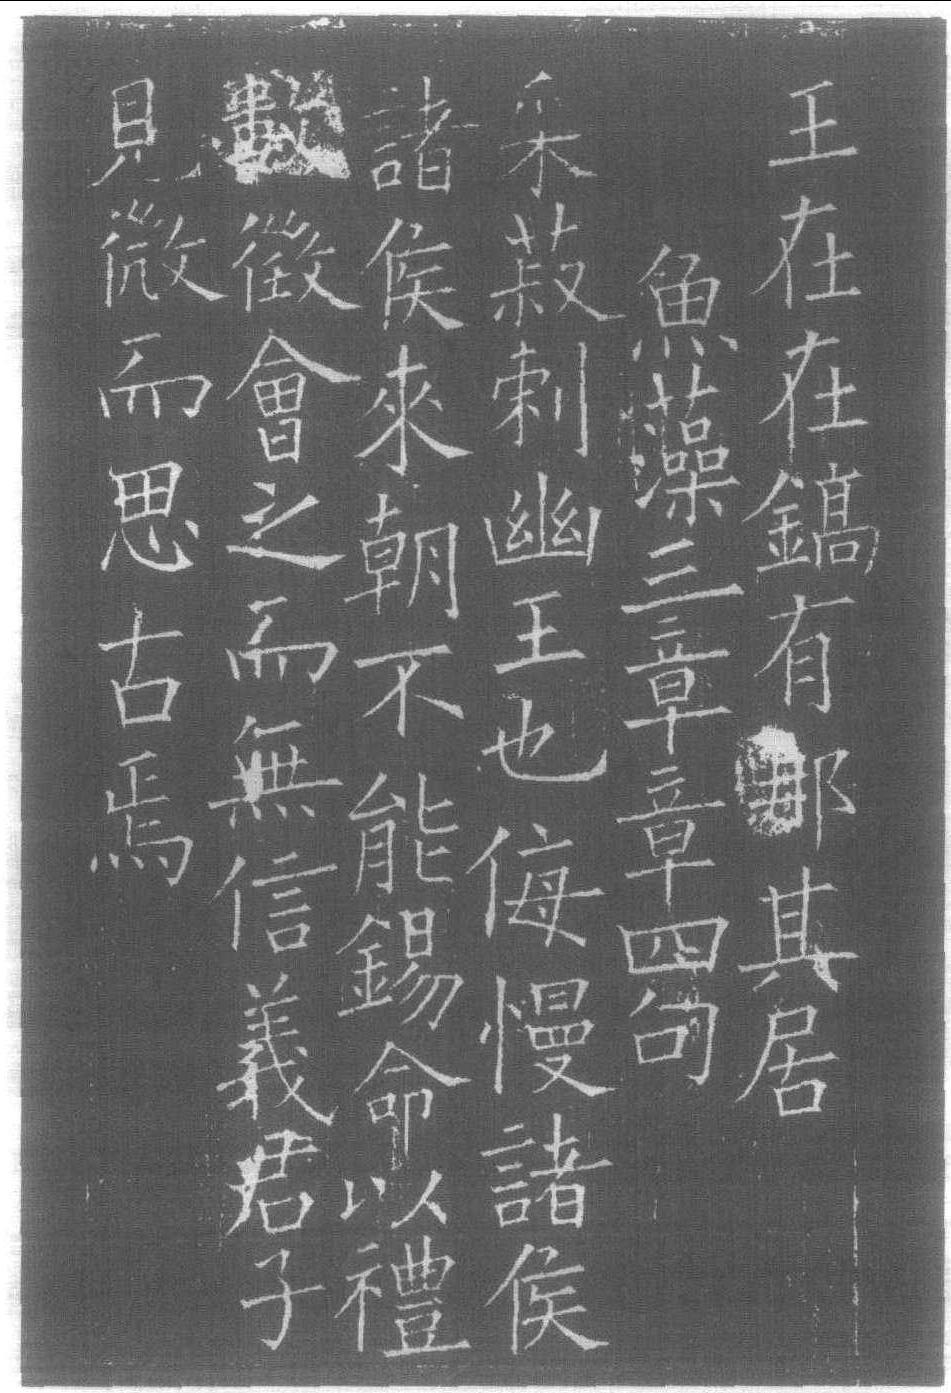 王在在鎬有那其居
魚藻三章章四句
采菽刺幽王也侮慢諸侯
諸侯來朝不能錫命以禮
數徵會之而無信義君子
見微而思古焉